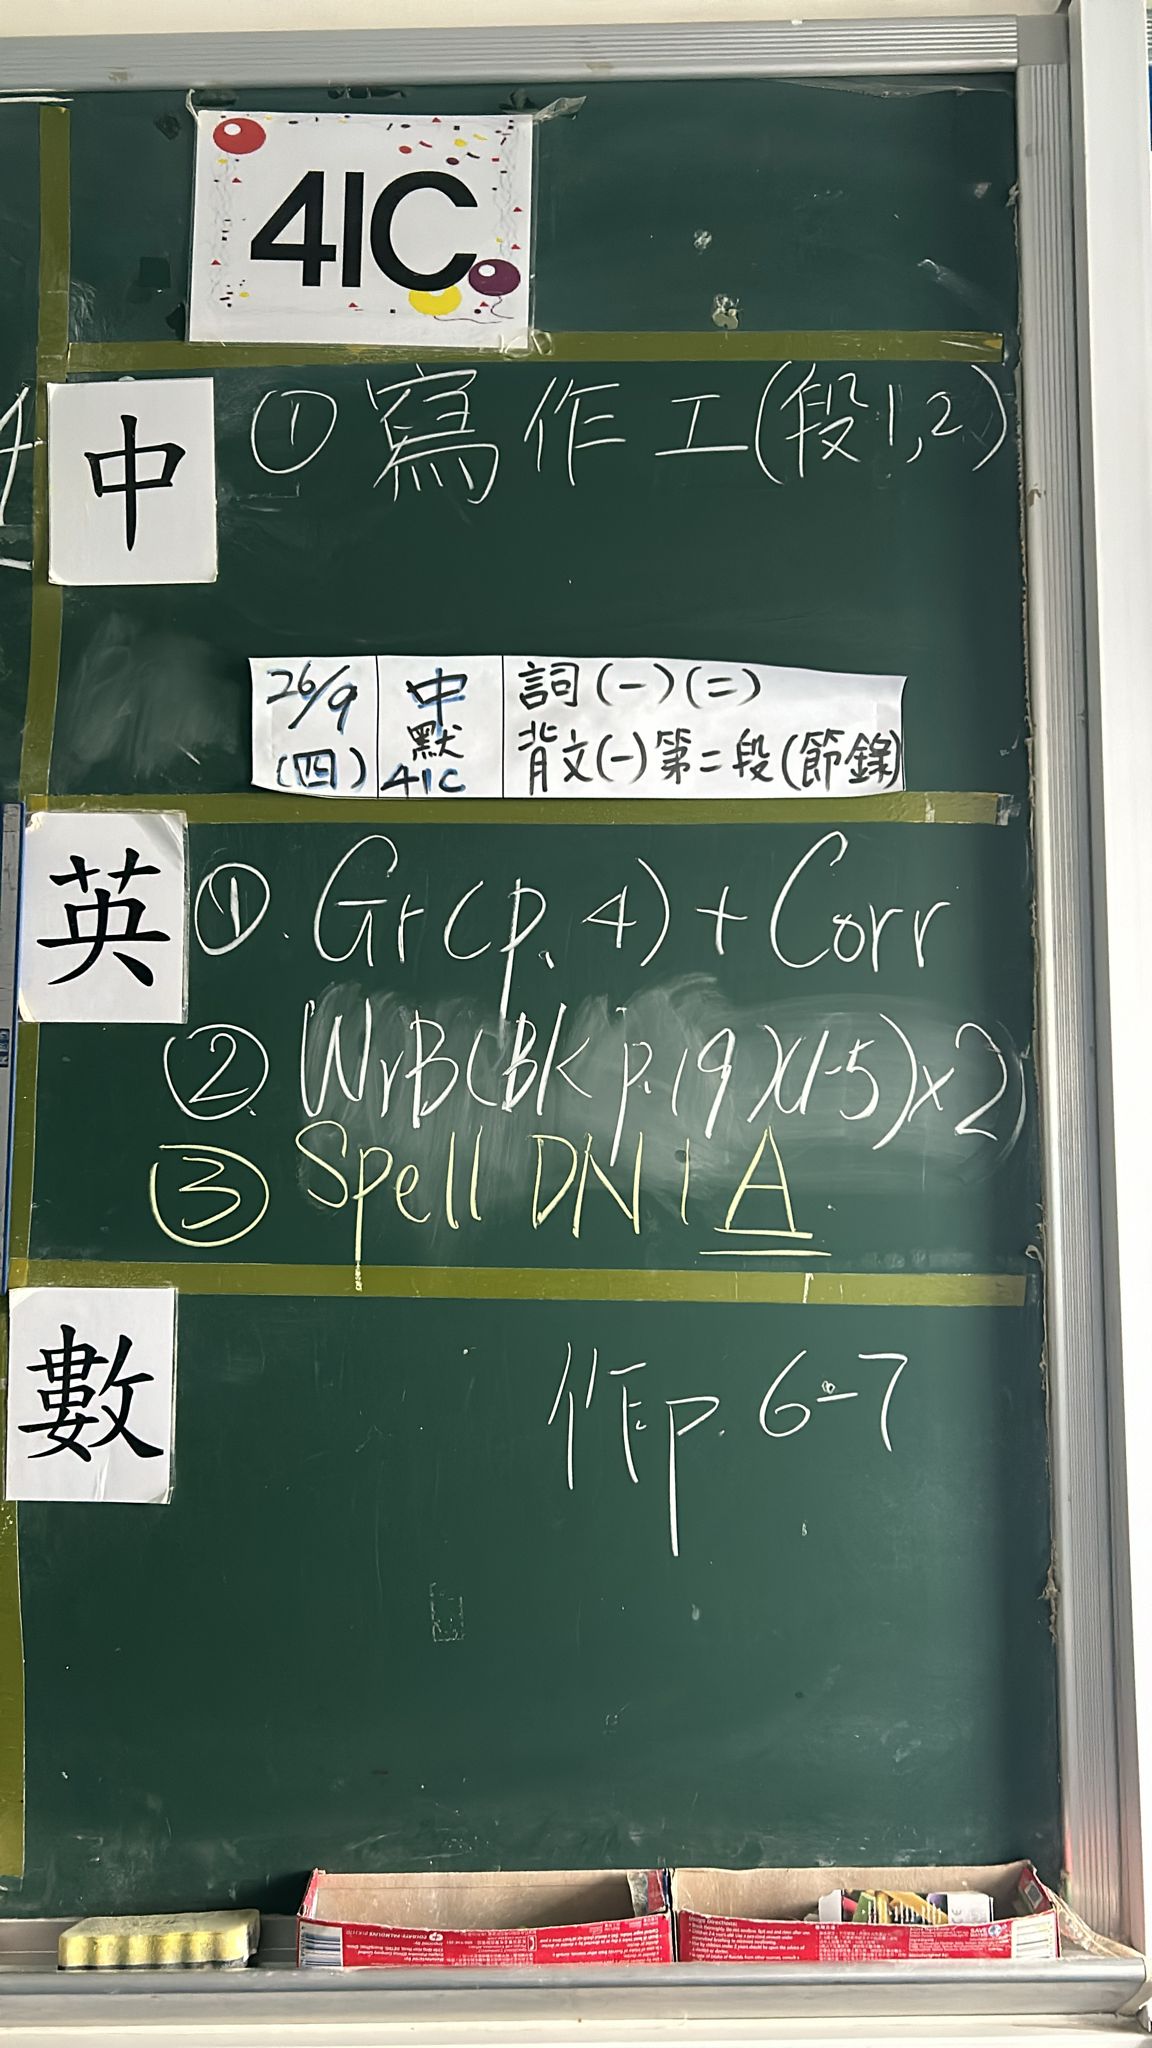 41C
中
① 寫作工(段1,2)
26/9
(四)
中
默
41C
詞(一)(二)
背文(一)第二段(節錄)
英
①. Gr(p. 4) + Corr
② WrB(BK p.19)(1-5)×2
③ Spell DN1 A
數
作p. 6-7